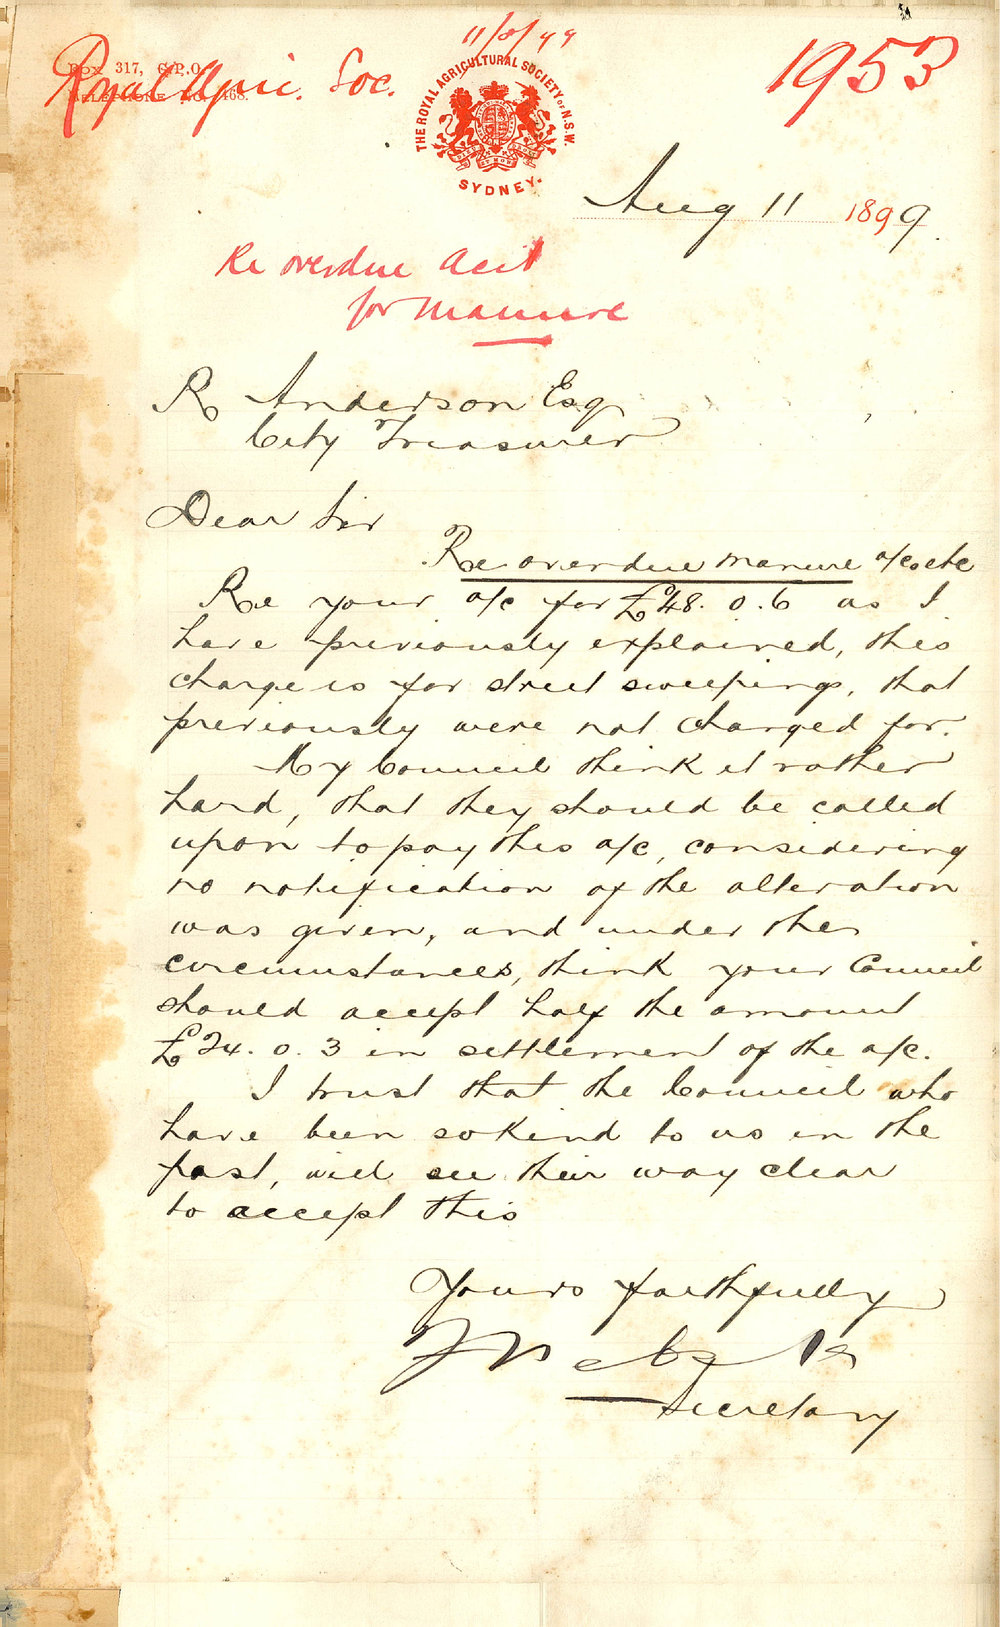 11/8/99
Royal Agri. Soc.
1953
BOX 317, G.P.O.
TELEPHONE NO. 468.
THE ROYAL AGRICULTURAL SOCIETY OF N.S.W.
SYDNEY.
Aug 11 1899.
Re overdue Acct
for Manure
R Anderson Esq
City Treasurer
Dear Sir
Re overdue manure a/c etc
Re your a/c for £48. 0. 6 as I
have previously explained, this
charge is for street sweepings, that
previously were not charged for.
My Council think it rather
hard, that they should be called
upon to pay this a/c, considering
no notification of the alteration
was given, and under the
circumstances, think your Council
should accept half the amount
£24. 0. 3 in settlement of the a/c.
I trust that the Council who
have been so kind to us in the
past, will see their way clear
to accept this
Yours faithfully
Secretary